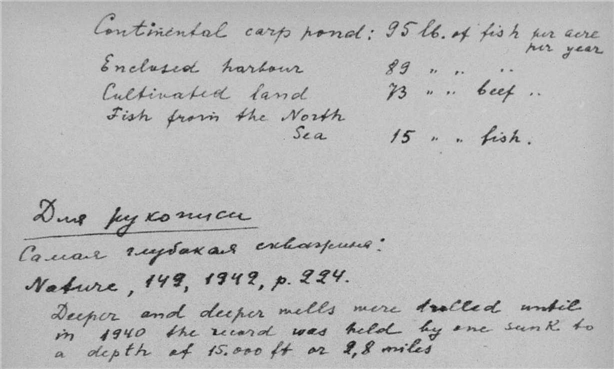 Continental carp pond: 95 lb. of fish per acre
per year
Enclosed harbour 89 " " "
Cultivated land 73 " " beef "
Fish from the North
Sea 15 " " fish.
Для рукописи
Самая глубокая скважина:
Nature, 149, 1942, p. 224.
Deeper and deeper wells were trolled until
in 1940 the record was held by one sunk to
a depth of 15.000 ft or 2,8 miles